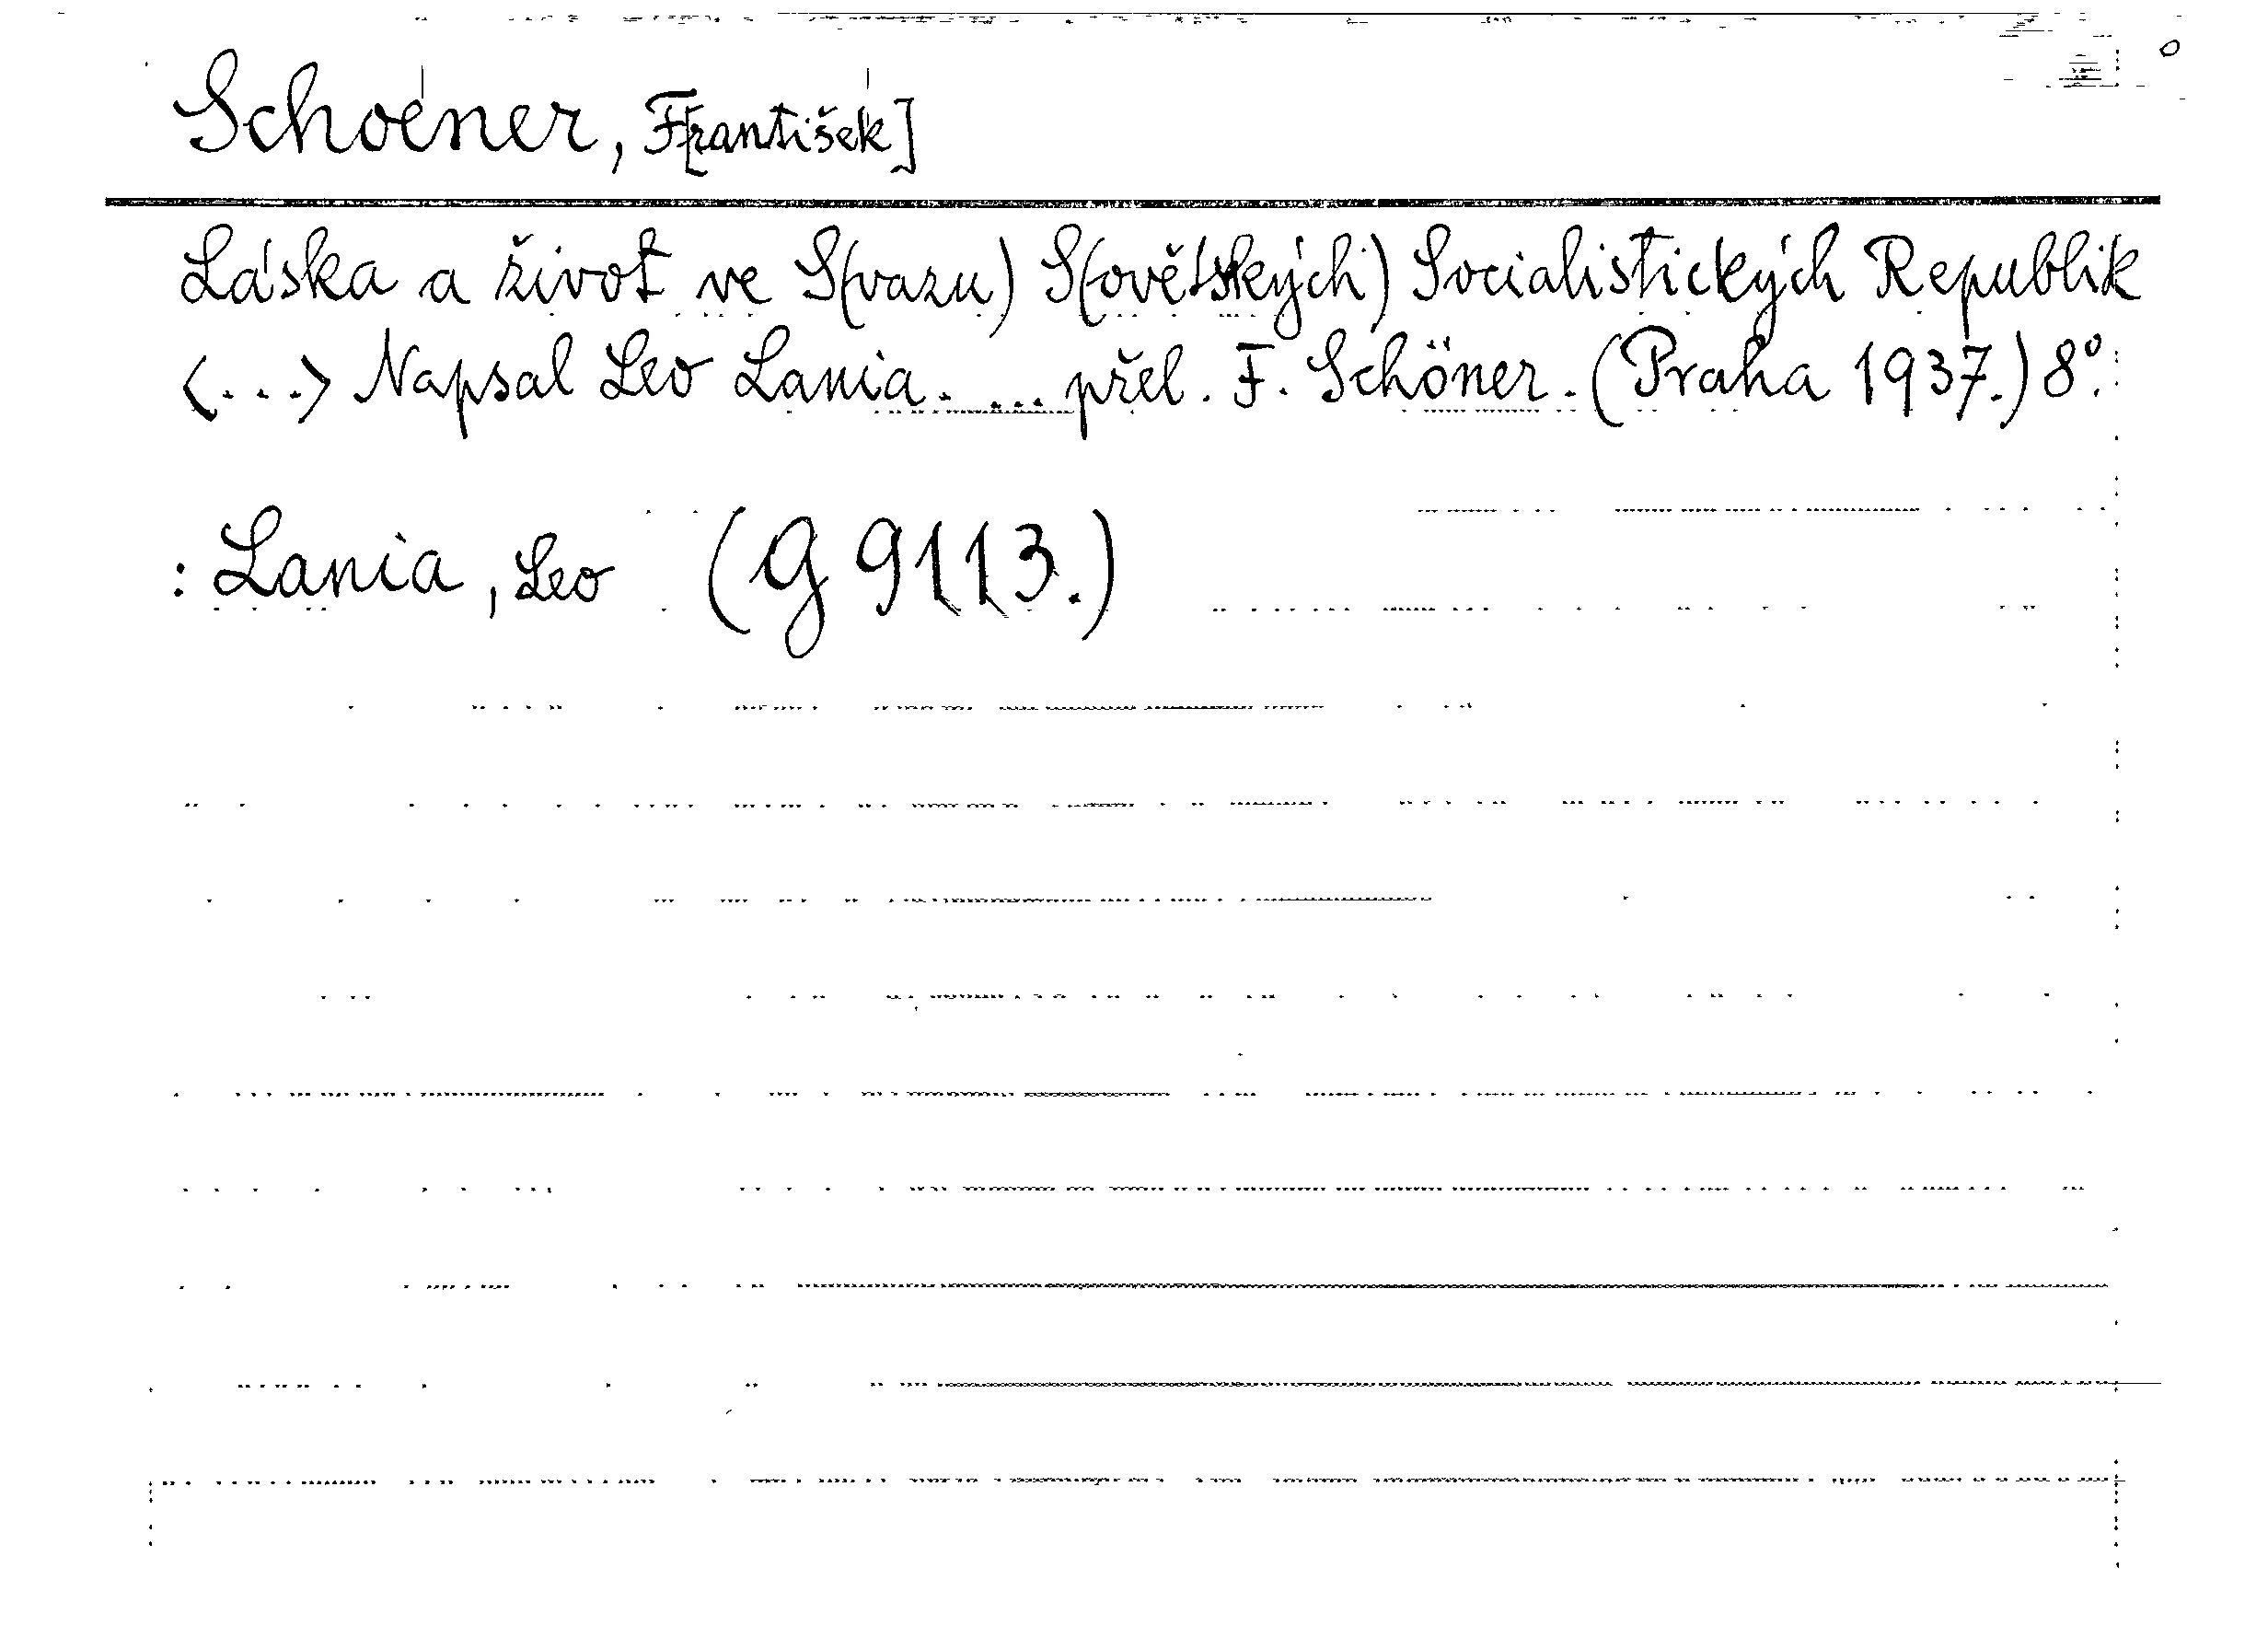 Schoener, F[rantišek]
Láska a život ve S(vazu) S(ovětských) Socialistických Republik
<...> Napsal Leo Lania. ... přel. F. Schöner. (Praha 1937.) 8°.
: Lania, Leo (G 9113.)